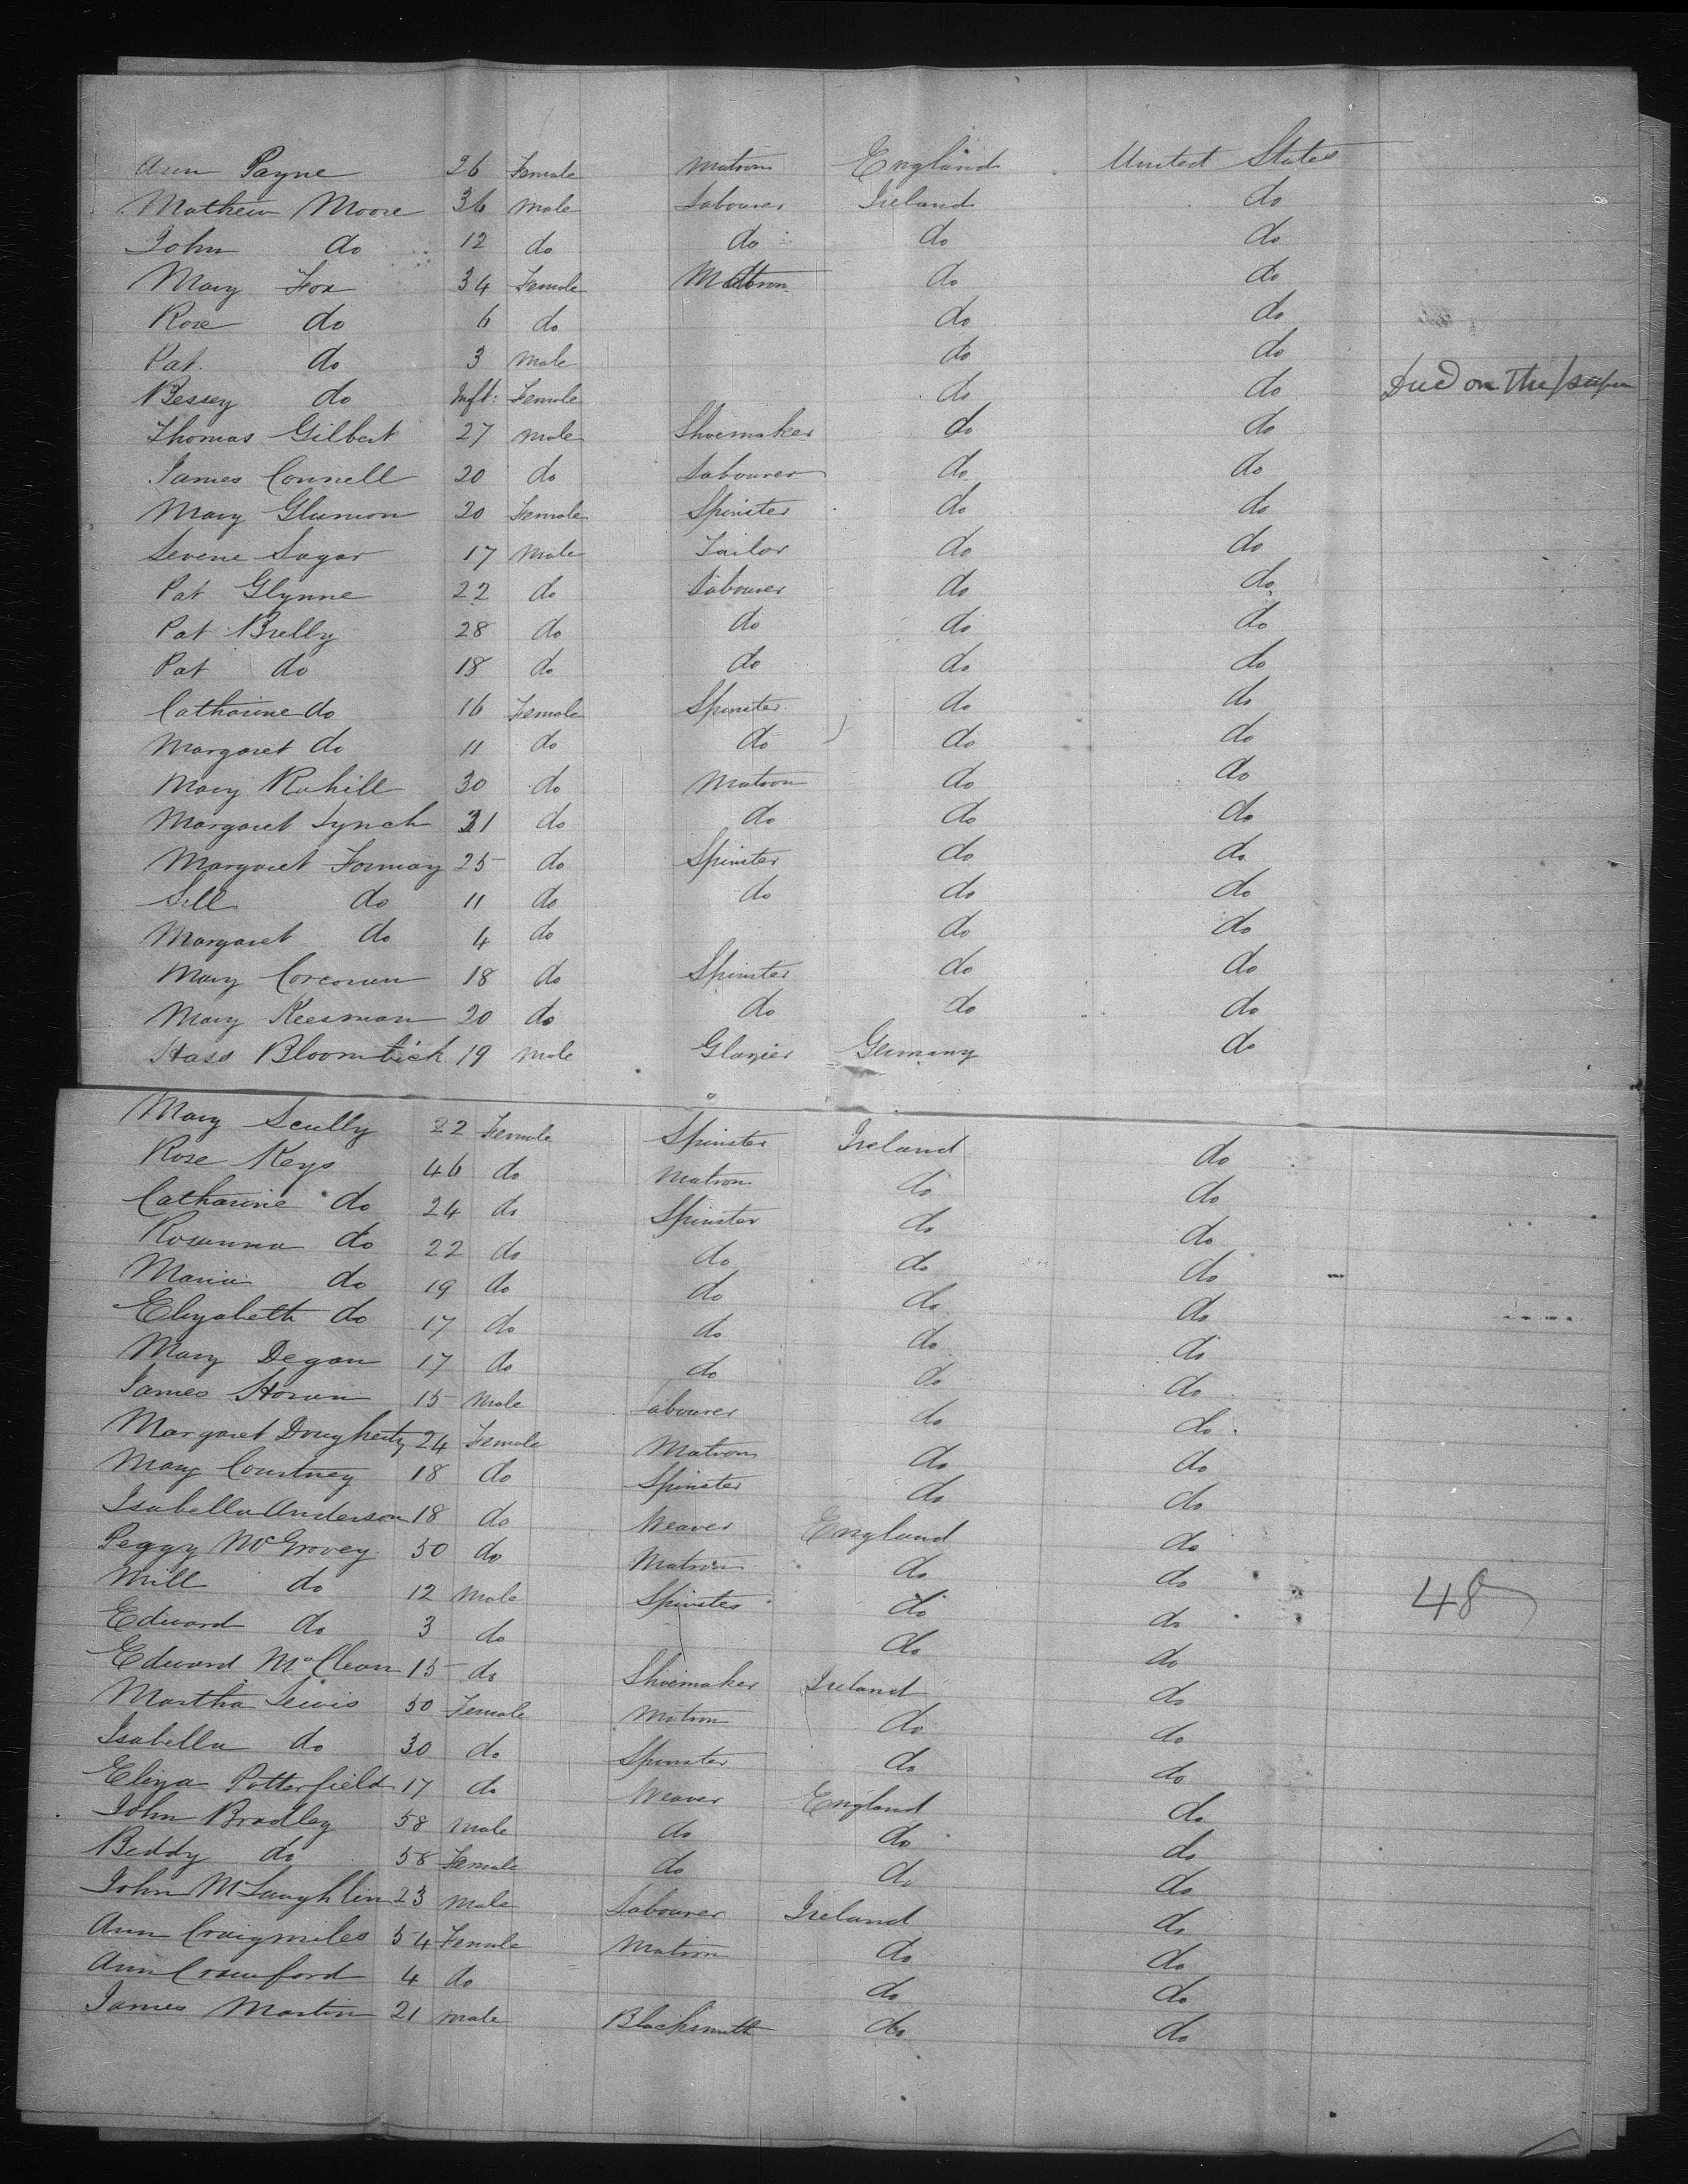 Ann Payne 26 Female Matron England United States
Mathew Moore 36 Male Labourer Ireland do
John do 12 do do do do
Mary Fox 34 Female Matron do do
Rose do 6 do do do
Pat do 3 Male do do
Bessey do Inft: Female do do Died on the
Thomas Gilbert 27 Male Shoemaker do do
James Connell 20 do Labourer do do
Mary Glunion 20 Female Spinster do do
Levene Sagar 17 Male Tailor do do
Pat Glynne 22 do Labourer do do
Pat Brelly 28 do do do do
Pat do 18 do do do do
Catharine do 16 Female Spinster do do
Margaret do 11 do do do do
Mary Rahill 30 do Matron do do
Margaret Lynch 31 do do do do
Margaret Formay 25 do Spinster do do
Sill do 11 do do do do
Margaret do 4 do do do
Mary Corcoran 18 do Spinster do do
Mary Keesman 20 do do do do
Hass Bloomtick 19 Male Glazier Germany do
Mary Scully 22 Female Spinster Ireland do
Rose Keys 46 do Matron do do
Catharine do 24 do Spinster do do
Rosanna do 22 do do do do
Maria do 19 do do do do
Elizabeth do 17 do do do do
Mary Degan 17 do do do do
James Horan 15 Male Labourer do do
Margaret Dougherty 24 Female Matron do do
Mary Courtney 18 do Spinster do do
Isabella Anderson 18 do Weaver England do
Peggy McGrovey 50 do Matron do do
Will do 12 Male Spinster do do 48
Edward do 3 do do do
Edward McClean 15 do Shoemaker Ireland do
Martha Lewis 50 Female Matron do do
Isabella do 30 do Spinster do do
Eliza Potterfield 17 do Weaver England do
John Bradley 58 Male do do do
Beddy do 58 Female do do do
John McLaughlin 23 Male Labourer Ireland do
Ann Craigmiles 54 Female Matron do do
Ann Crawford 4 do do do
James Martin 21 Male Blacksmith do do